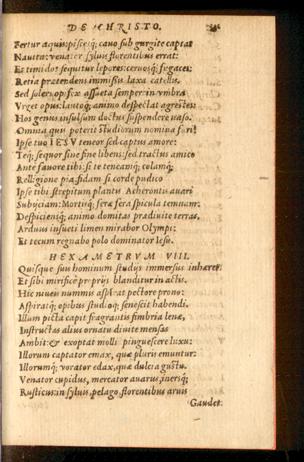 DE CHRISTO.
Fertur aquis: piscesq; cauo sub gurgite captat
Nauita: venator syluis florentibus errat:
Et timidos sequitur lepores: ceruosq; fugaces:
Retia prætendens immissis laxa catellis.
Sed solers opifex assueta semper in vmbra
Vrget opus: lautoq; animo despectat agrestes:
Hos genus insulsum doctus suspendere naso.
Omnia quis poterit studiorum nomina fari?
Ipse tuo IESV teneor sed captus amore:
Teq; sequor sine fine libens: sed tractus amico
Ante fauore tibi: si te teneamq; colamq;
Relligione pia, fidam si corde pudico
Ipse tibi: strepitum plantis Acherontis auari
Subijciam: Mortisq; feræ fera spicula temnam:
Despiciensq; animo domitas prædiuite terras,
Ardui insueti limen mirabor Olympi:
Et tecum regnabo polo dominator Iesu.
HEXAMETRVM VIII.
Quisque suu hominum studijs immersus inhæret
Et sibi mirifice pr priis blanditur in actis.
Hic niueū nummis aspirat pectore prono:
Aspiratq; opibus studioq; senescit habendi.
Illum picta capit fragrantis fimbria lenæ,
Instructas alius ornatu diuite mensas
Ambit: & exoptat molli pinguescere luxu:
Illorum captator emax, quæ pluris emuntur:
Illorumq; vorator edax, quæ dulcia gustu.
Venator cupidus, mercator auarus, inersq;
Rusticus: in syluis, pelago, florentibus aruis
Gaudet: